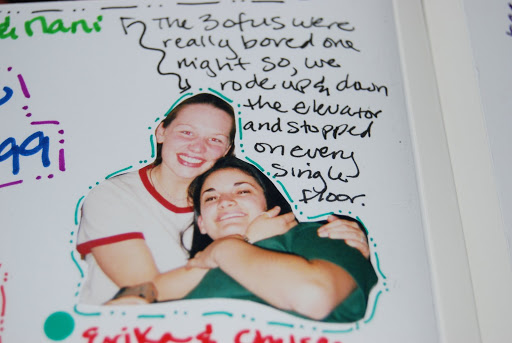 & Nani
The 3 of us were
really bored one
night so, we
rode up & down
the elevator
and stopped
on every
single
floor.
99
Erika &